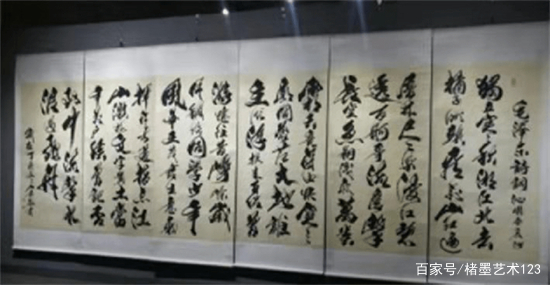 毛泽东诗词沁园春长沙
独立寒秋湘江北去
橘子洲头看万山红遍
层林尽染漫江碧
透百舸争流鹰击
长空鱼翔浅底万类
霜天竞自由怅寥
廓问苍茫大地谁
主沉浮携来百侣曾
游忆往昔峥嵘岁
月稠恰同学少年
风华正茂书生意气
挥斥方遒指点江
山激扬文字粪土当
年万户侯曾记否
到中流击水
浪遏飞舟
百家号/楮墨艺术123